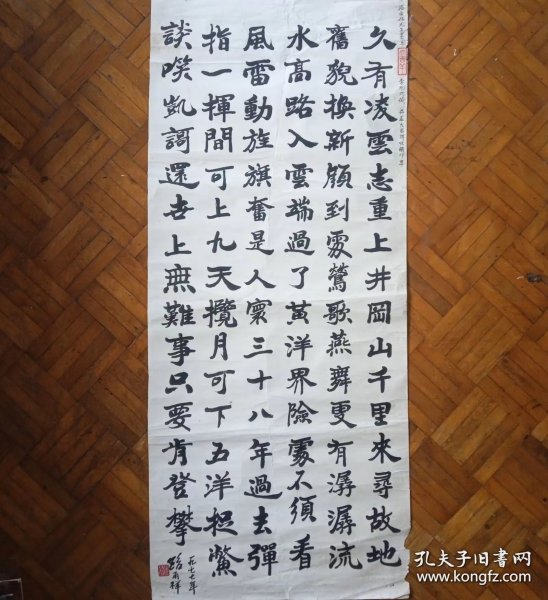 久有凌雲志重上井岡山千里來尋故地
舊貌換新顏到處鶯歌燕舞更有潺潺流
水高路入雲端過了黃洋界險處不須看
風雷動旌旗奮是人寰三十八年過去彈
指一揮間可上九天攬月可下五洋捉鱉
談笑凱謌還世上無難事只要肯登攀
一九七七年
孔夫子旧書网
www.kongfz.com